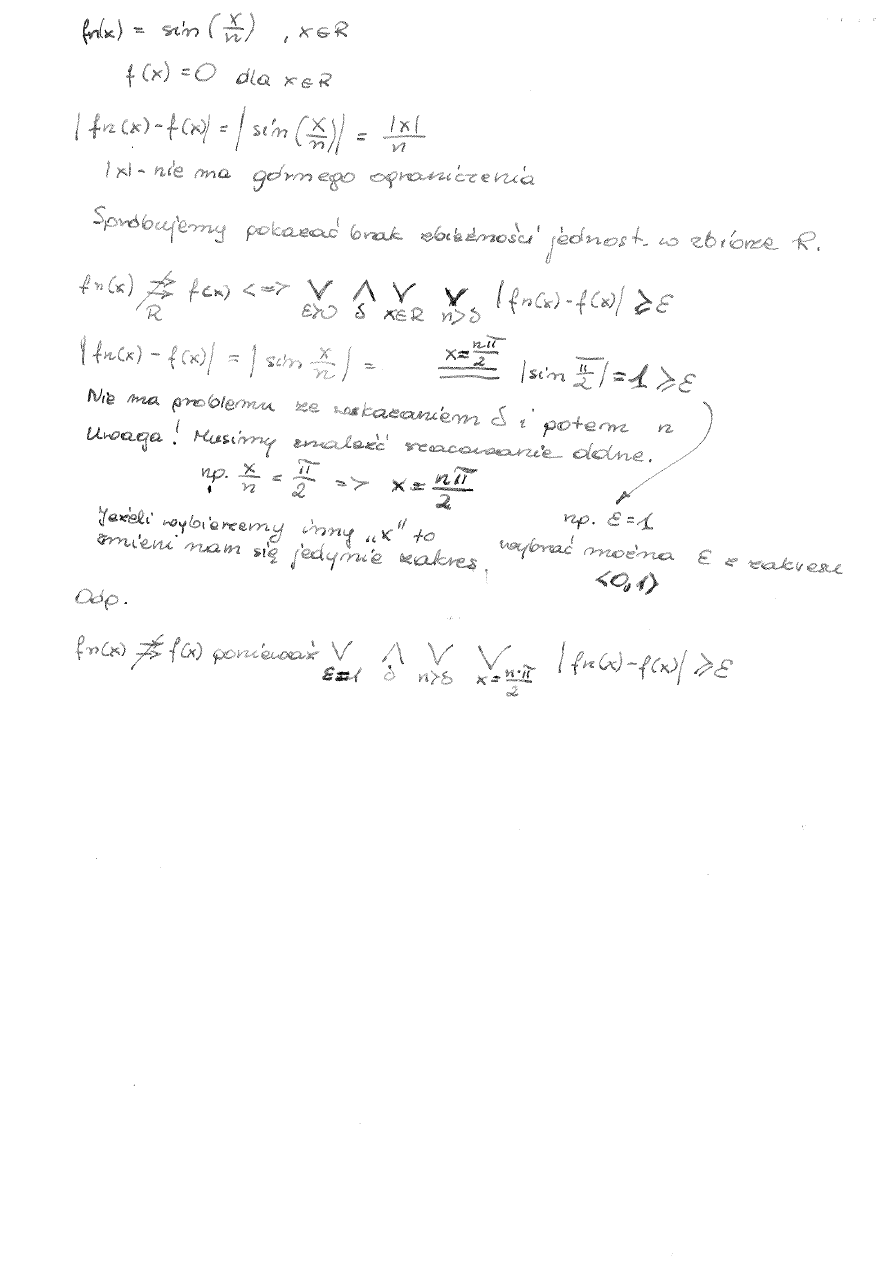 fn(x) = sin (x/n) , x∈R
f(x) = 0 dla x∈R
|fn(x) - f(x)| = |sin (x/n)| = |x|/n
|x| - nie ma górnego ograniczenia
Spróbujemy pokazać brak zbieżności jednost. w zbiorze R.
fn(x) ⇉̸ f(x) <=> ⋁ ⋀ ⋁ ⋁ |fn(x) - f(x)| ≥ ε
R ε>0 δ x∈R n>δ
|fn(x) - f(x)| = |sin x/n| = x = nπ/2 |sin π/2| = 1 ≥ ε
Nie ma problemu ze wskazaniem δ i potem n
Uwaga! Musimy znaleźć szacowanie dolne.
np. x/n = π/2 => x = nπ/2
np. ε = 1
Jeżeli wybierzemy inny „x" to
zmieni nam się jedynie zakres.
wybrać można ε z zakresu
<0,1>
Odp.
fn(x) ⇉̸ f(x) ponieważ ⋁ ⋀ ⋁ ⋁ |fn(x) - f(x)| ≥ ε
ε=1 δ n>δ x = n·π/2